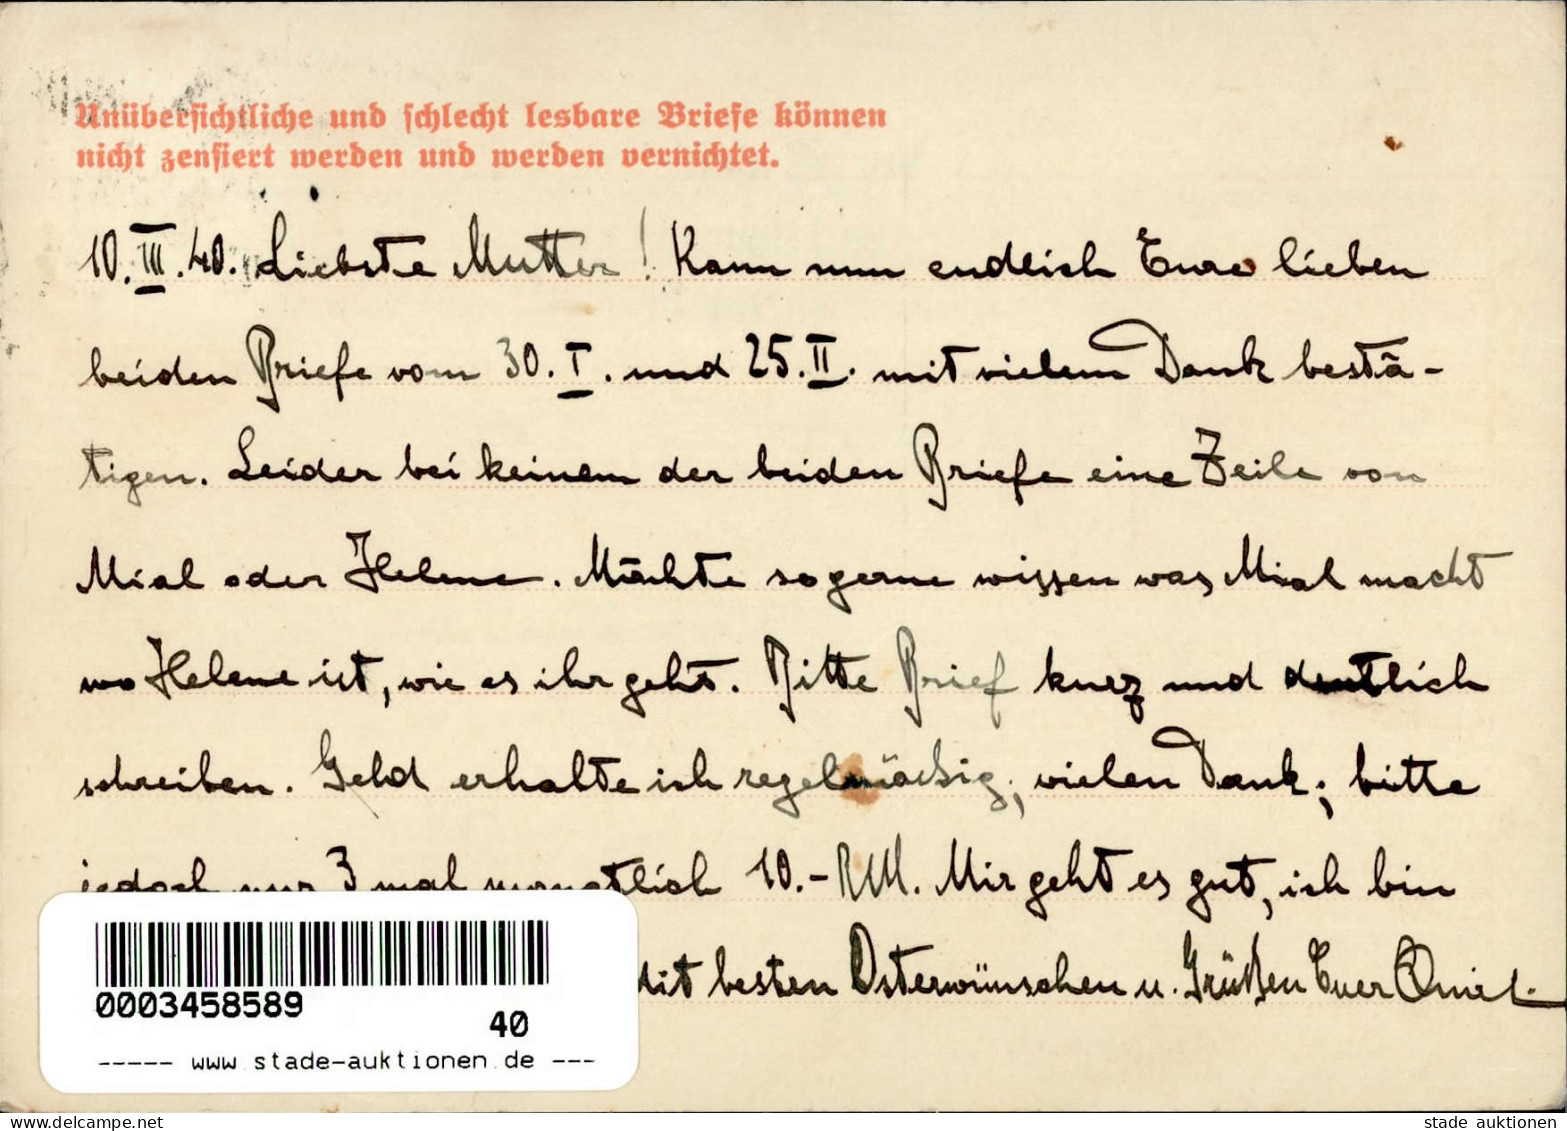 Unübersichtliche und schlecht lesbare Briefe können
nicht zensiert werden und werden vernichtet.
10.III.40. Liebste Mutter! Kann nun endlich Eure lieben
beiden Briefe vom 30.I. und 25.II. mit vielem Dank bestä-
tigen. Leider bei keinem der beiden Briefe eine Zeile von
Mial oder Helene. Möchte so gerne wissen was Mial macht
wo Helene ist, wie es ihr geht. Bitte Brief kurz und deutlich
schreiben. Geld erhalte ich regelmäßig, vielen Dank; bitte
jedoch nur 3 mal monatlich 10.- RM. Mir geht es gut, ich bin
Mit besten Osterwünschen u. Grüßen Euer
0003458589
40
----- www.stade-auktionen.de ---
stade auktionen